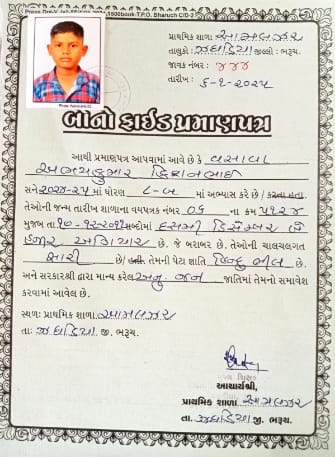 1500book-T.P.O. Bharuch C/D-2
પ્રાથમિક શાળા આમલઝર
તાલુકો: ઝઘડિયા જીલ્લો: ભરૂચ.
જાવક નંબર : ૪૪૪
તારીખ : ૬-૧-૨૦૨૫
બોનોફાઈડ પ્રમાણપત્ર
આથી પ્રમાણપત્ર આપવામાં આવે છે કે વસાવા
અજયકુમાર કિશનભાઈ
સને ૨૦૨૪-૨૫ માં ધોરણ ૮-બ માં અભ્યાસ કરે છે / કરતા હતા.
તેઓની જન્મ તારીખ શાળાના વયપત્રક નંબર ૦૬ ના ક્રમ ૫૧૨૪
મુજબ તા ૧૦-૧૨-૨૦૧૧ શબ્દોમાં દસમી ડિસેમ્બર બે
હજાર અગિયાર છે. જે બરાબર છે. તેઓની ચાલચલગત
સારી છે/ હતી. તેમની પેટા જ્ઞાતિ હિન્દુ ભીલ છે.
અને સરકારશ્રી દ્વારા માન્ય કરેલ અનુ. જન જાતિમાં તેમનો સમાવેશ
કરવામાં આવેલ છે.
સ્થળ: પ્રાથમિક શાળા આમલઝર
તા: ઝઘડિયા જી. ભરૂચ.
આચાર્યશ્રી,
પ્રાથમિક શાળા આમલઝર
તા. ઝઘડિયા જી. ભરૂચ.